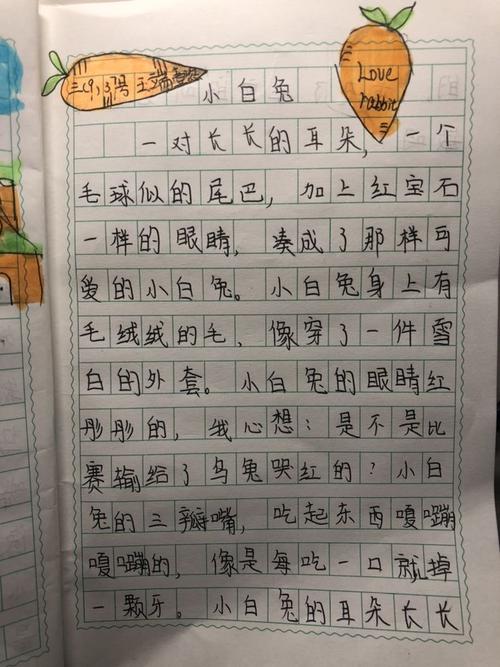 Love
rabbit
小白兔
一对长长的耳朵，一个
毛球似的尾巴，加上红宝石
一样的眼睛，凑成了那样可
爱的小白兔。小白兔身上有
毛绒绒的毛，像穿了一件雪
白的外套。小白兔的眼睛红
彤彤的，我心想：是不是比
赛输给了乌兔哭红的？小白
兔的三瓣嘴，吃起东西嘎嘣
嘎嘣的，像是每吃一口就掉
一颗牙。小白兔的耳朵长长